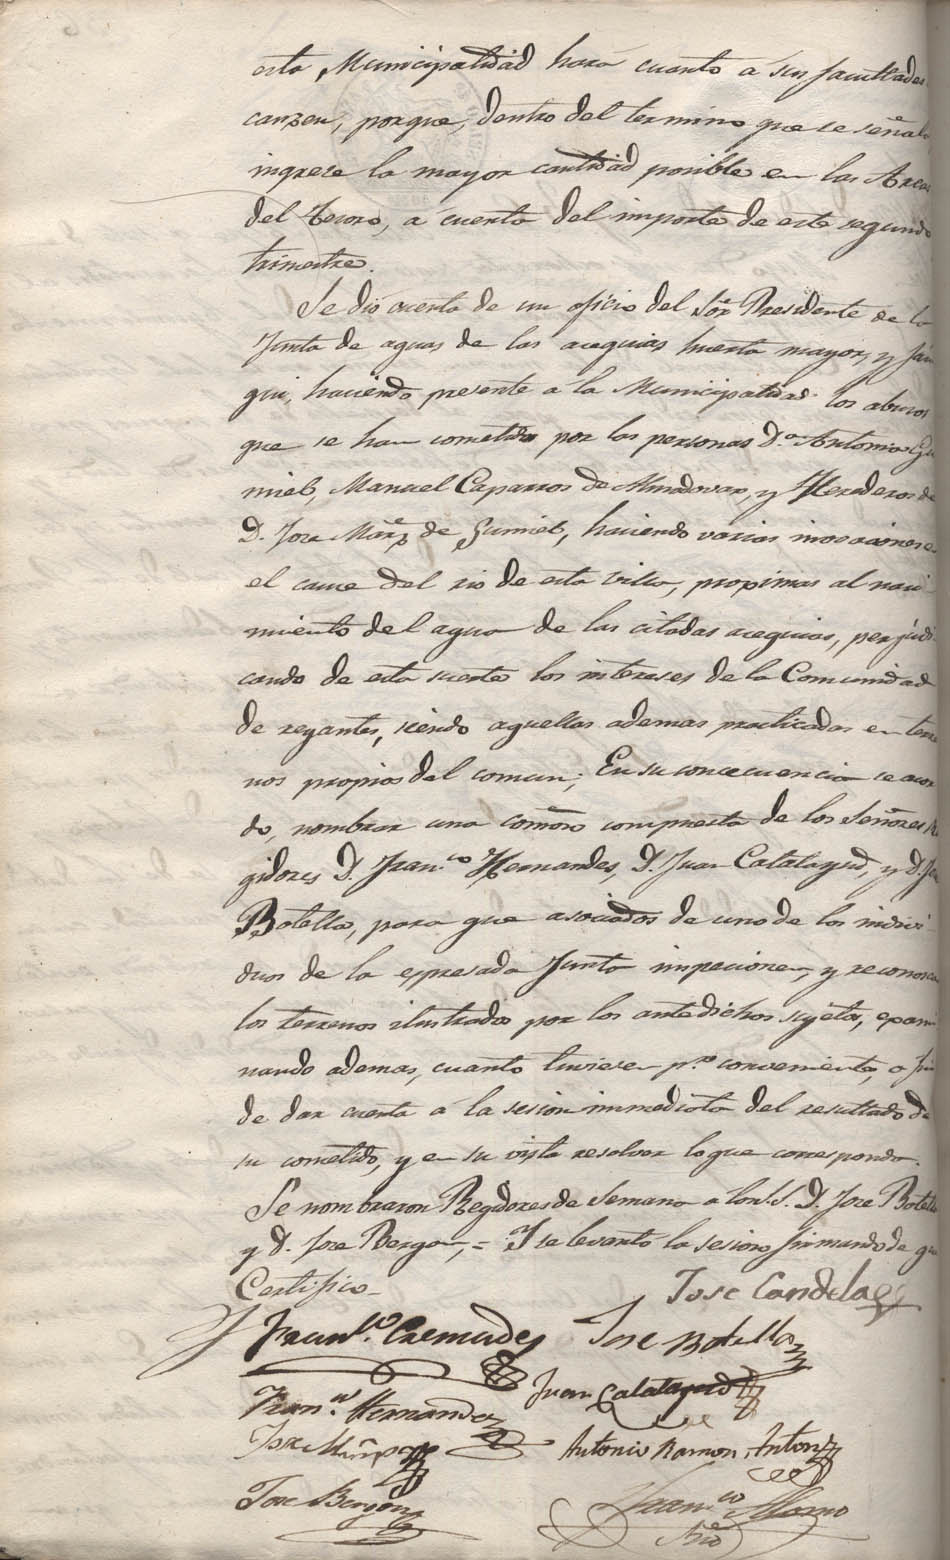 esta Municipalidad hará cuanto á sus facultades
canzen, porque, dentro del termino que se señala
ingrese la mayor cantidad posible en las Arcas
del Tesoro, a cuenta del importe de este segundo
trimestre.
Se dió cuenta de un oficio del Sõr Presidente de la
Junta de aguas de las acequias huerta mayor, y
qui, haciendo presente á la Municipalidad los abusos
que se han cometido por las personas D.n Antonio Gu
miel, Manuel Caparros de Almodovar, y Herederos de
D. Jose Marz de Gumiel, haciendo varias
el cauce del rio de esta villa, proximas al naci
miento del agua de las citadas acequias, perjudi
cando de esta suerte los intereses de la Comunidad
de regantes, siendo aquellas ademas practicadas en terre
nos propios del comun; En su concecuencia se acor
do, nombrar una comõn compuesta de los Señores Re
gidores D. Fran.co Hernandes, D. Juan Catalayud, y D. Jose
Botella, para que asociados de uno de los indivi
duos de la espresada Junta inspecionen, y reconoscan
los terrenos por los antedichos sujetos, exami
nando ademas, cuanto tuviesen p.r conveniente, a fin
de dar cuenta a la sesion immediata del resultado de
su cometido, y en su vista resolver lo que corresponda.
Se nombraron Regidores de Semana a los S.S. D. Jose Botella
y D. Jose Bergon, = Y se levantó la sesion firmando de que
Certifico
Jose Candela
Fran.co Cremades Jose Botella
Juan Catalayud
Fran.co Hernandez
Jose
Antonio Ramon Anton
Jose Bergon
Fran.co
Srio